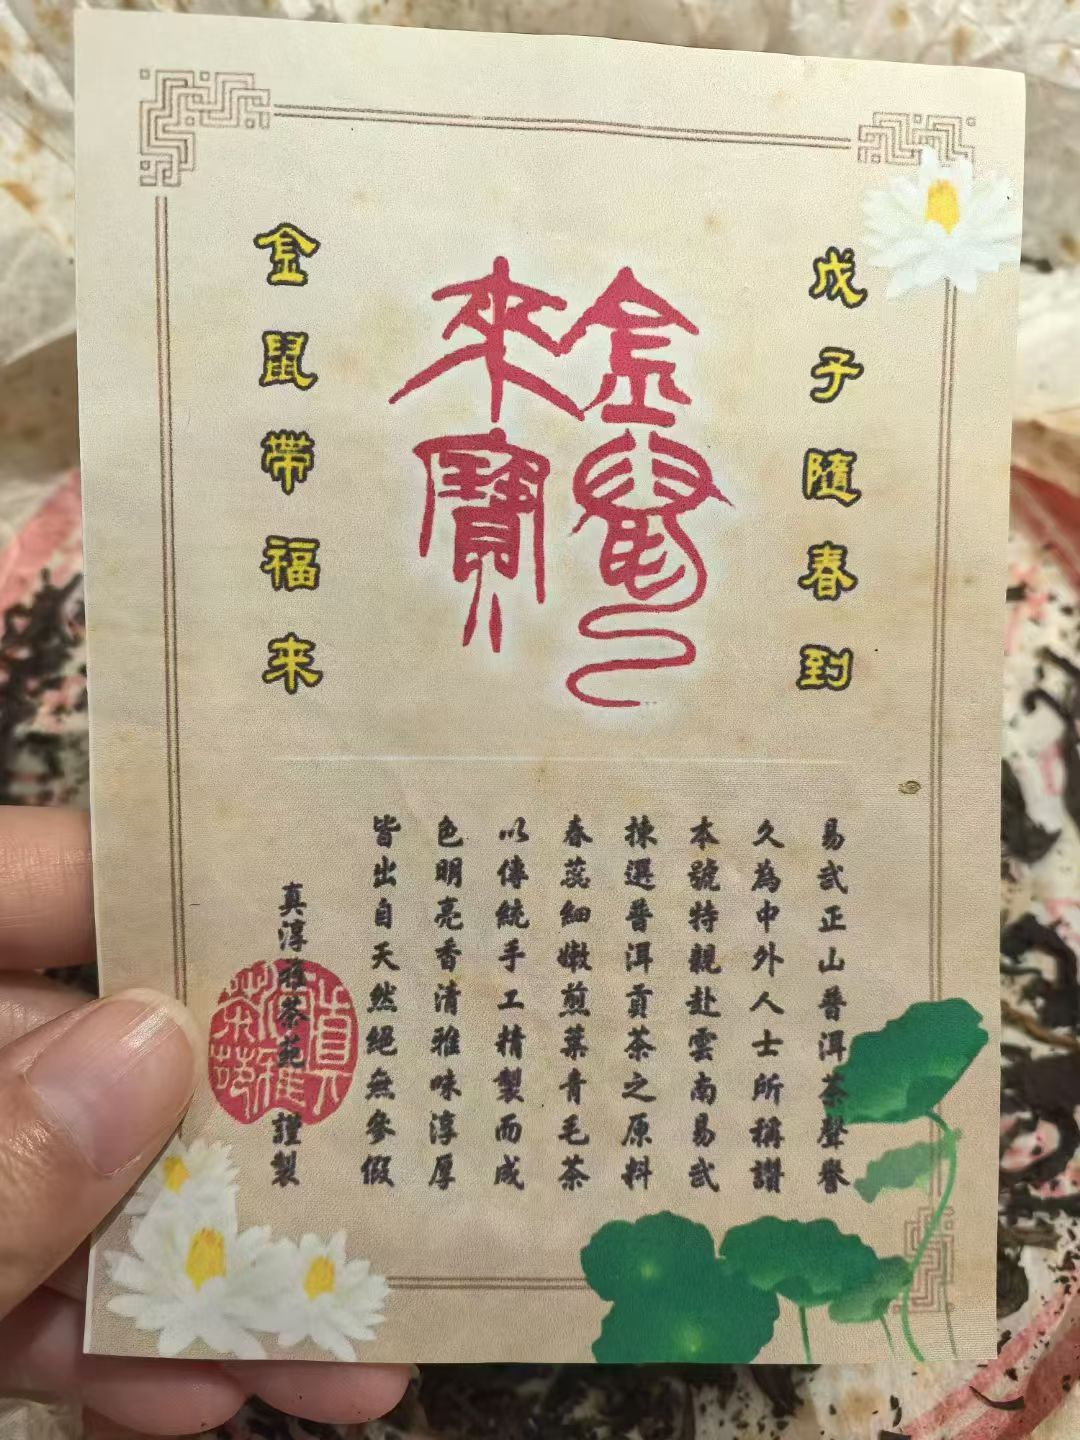 戊子隨春到
金鼠
來寶
金鼠帶福來
易武正山普洱茶聲譽
久為中外人士所稱讚
本號特親赴雲南易武
揀選普洱貢茶之原料
春蕊細嫩煎葉青毛茶
以傳統手工精製而成
色明亮香清雅味淳厚
皆出自天然絕無參假
真淳雅茶苑 謹製
真淳雅茶苑